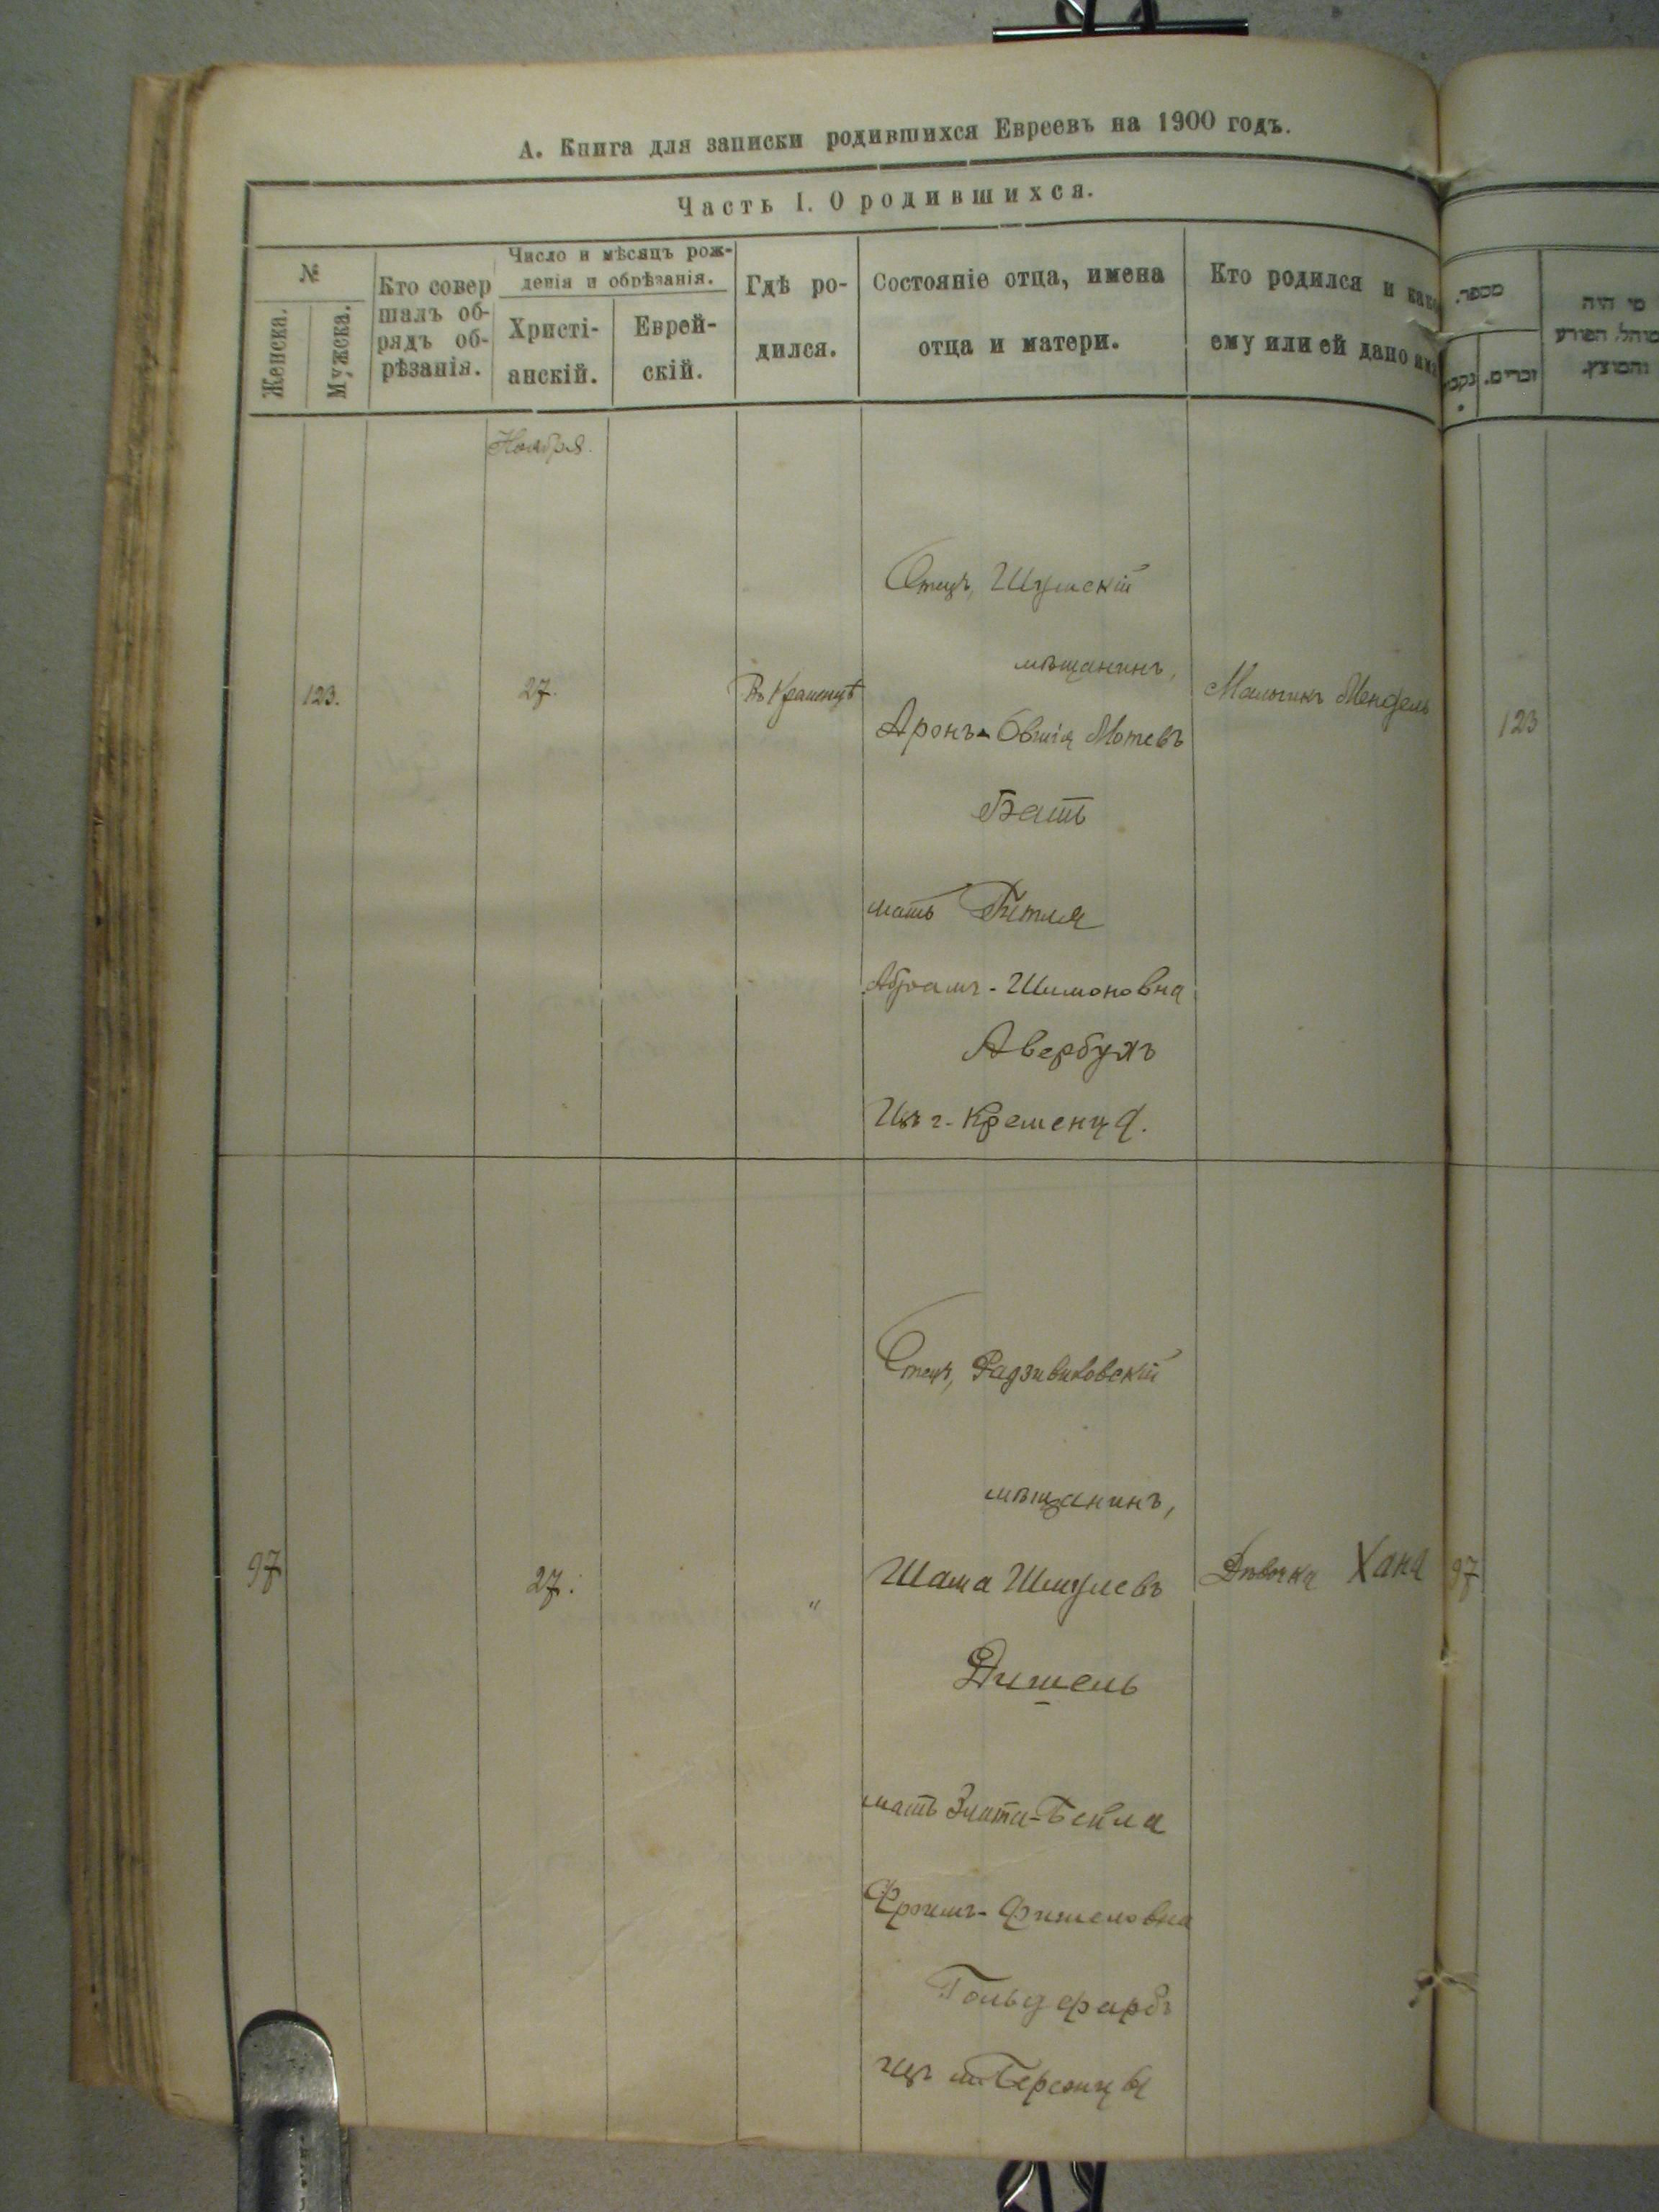 А. Книга для записки родившихся Евреевъ на 1900 годъ.
Часть I. О родившихся.
№
Женска.
Мужска.
Кто совер
шалъ об-
рядъ об-
рѣзанія.
Число и мѣсяцъ рож-
денія и обрѣзанія.
Христі-
анскій.
Еврей-
скій.
Гдѣ ро-
дился.
Состояніе отца, имена
отца и матери.
Кто родился и
ему или ей дано
מספר.
זכרים.
מי היה
מוהל הפורע
והמוצץ.
Ноября.
123.
27.
Въ Кременцѣ
Отецъ, Шумскій
мѣщанинъ,
Аронъ-Овшія Мотевъ
Батъ
мать Гитля
Абрамъ-Шимоновна
Авербухъ
Изъ г. Кременца.
Мальчикъ Мендель
123
97
27.
"
Отецъ, Радзивиловскій
мѣщанинъ,
Шама Шмулевъ
Дишель
мать Злата-Бейла
Фроимъ-Фишеловна
Гольдфарбъ
изъ м. Бережцы
Дѣвочка Хана
97